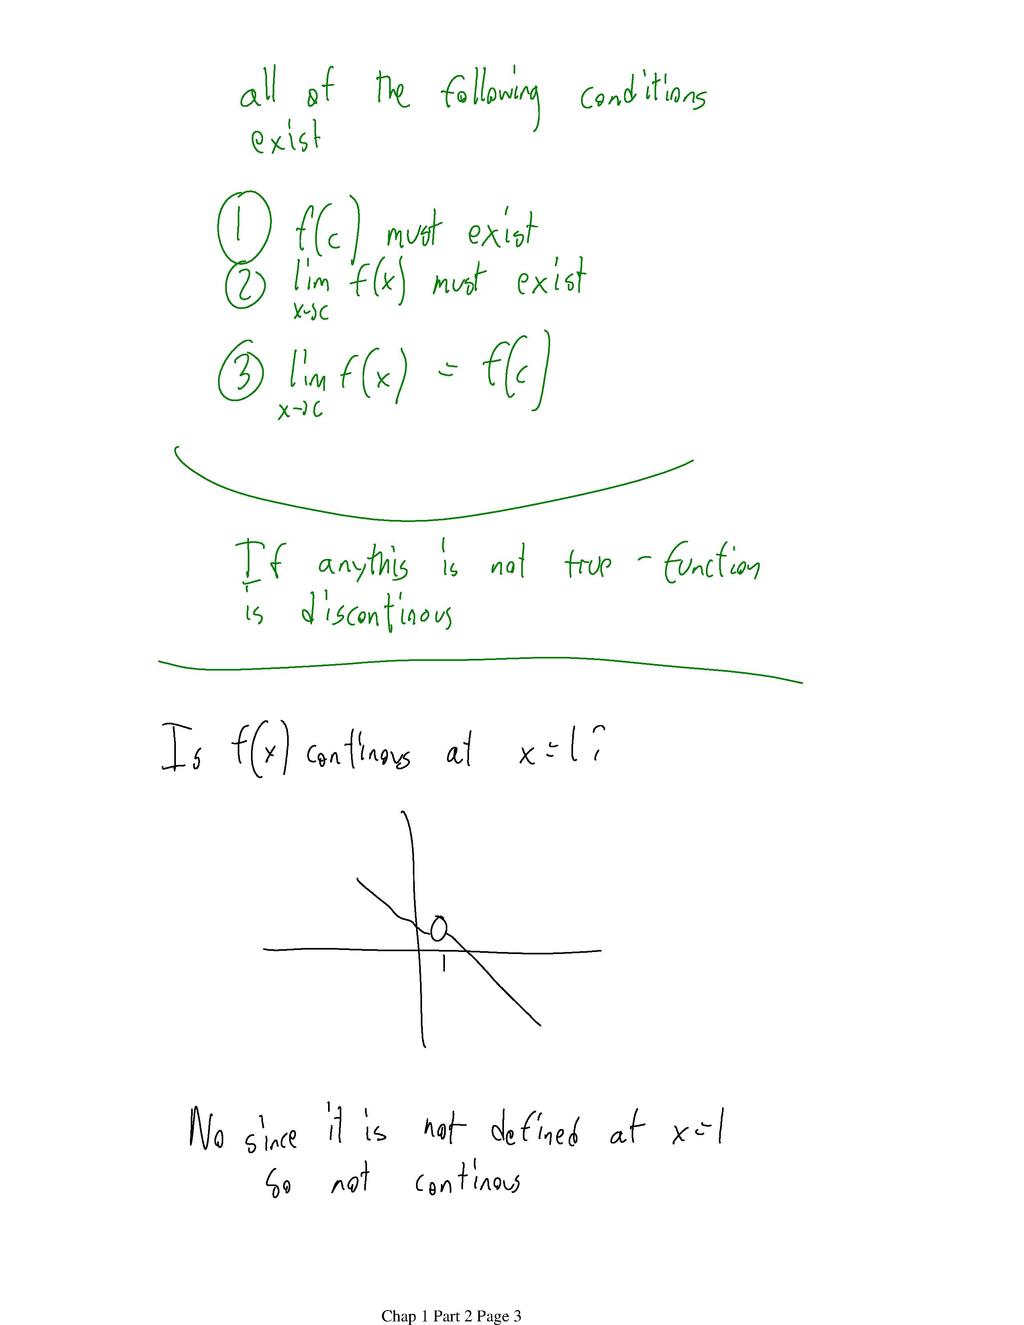 all of the following conditions
exist
1 f(c) must exist
2 lim f(x) must exist
x→c
3 lim f(x) = f(c)
x→c
If anythis is not true - function
is discontinous
Is f(x) continous at x=1?
1
No since it is not defined at x=1
so not continous
Chap 1 Part 2 Page 3